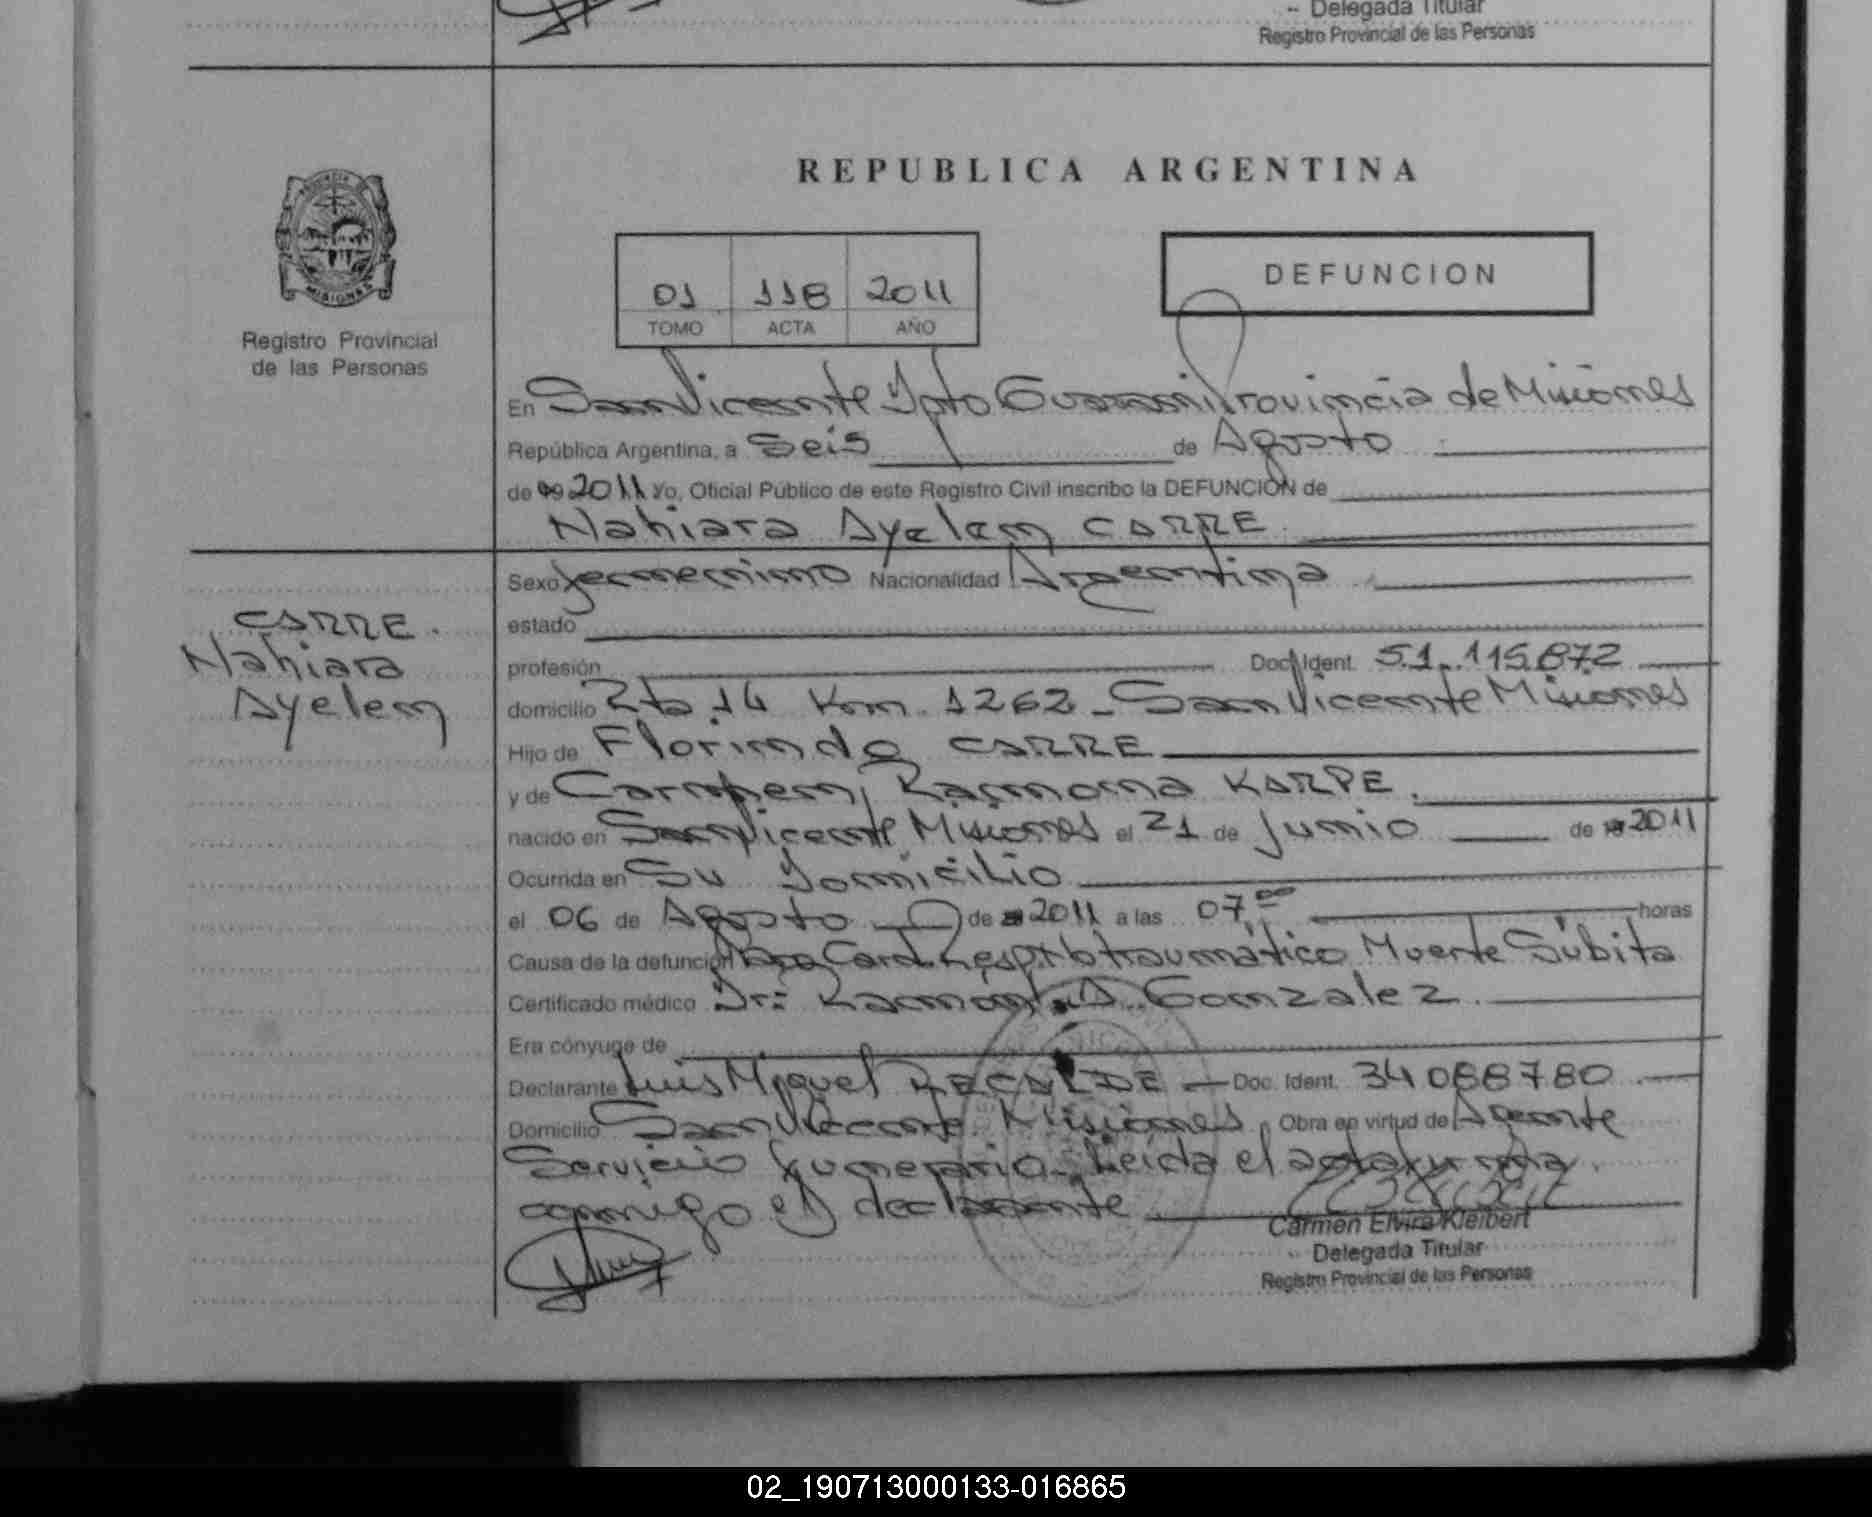 Delegada Titular
Registro Provincial de las Personas
REPUBLICA ARGENTINA
PROVINCIA DE
MISIONES
Registro Provincial
de las Personas
01 118 2011
TOMO ACTA AÑO
DEFUNCION
En San Vicente Dpto Guarani Provincia de Misiones
República Argentina, a Seis de Agosto
de 2011 yo, Oficial Público de este Registro Civil inscribo la DEFUNCION de
Nahiara Ayelen CARRE
CARRE.
Nahiara
Ayelen
Sexo femenino Nacionalidad Argentina
estado
profesión Doc. Ident. 51.115.872
domicilio Rta 14 Km. 1262 - San Vicente Misiones
Hijo de Florindo CARRE
y de Carmen Ramona KARPE.
nacido en San Vicente Misiones el 21 de Junio de 2011
Ocurrida en Su Domicilio
el 06 de Agosto de 2011 a las 07,00 horas
Causa de la defunción Paro Card. Resp. traumático Muerte Súbita
Certificado médico Dr: Ramón A. Gonzalez
Era cónyuge de
Declarante Luis Miguel RECALDE Doc. Ident. 34 088780
Domicilio San Vicente Misiones Obra en virtud de Agente
Servicio funerario. Leída el acta firma
conmigo el declarante
Carmen Elvira Kleibert
Delegada Titular
Registro Provincial de las Personas
02_190713000133-016865